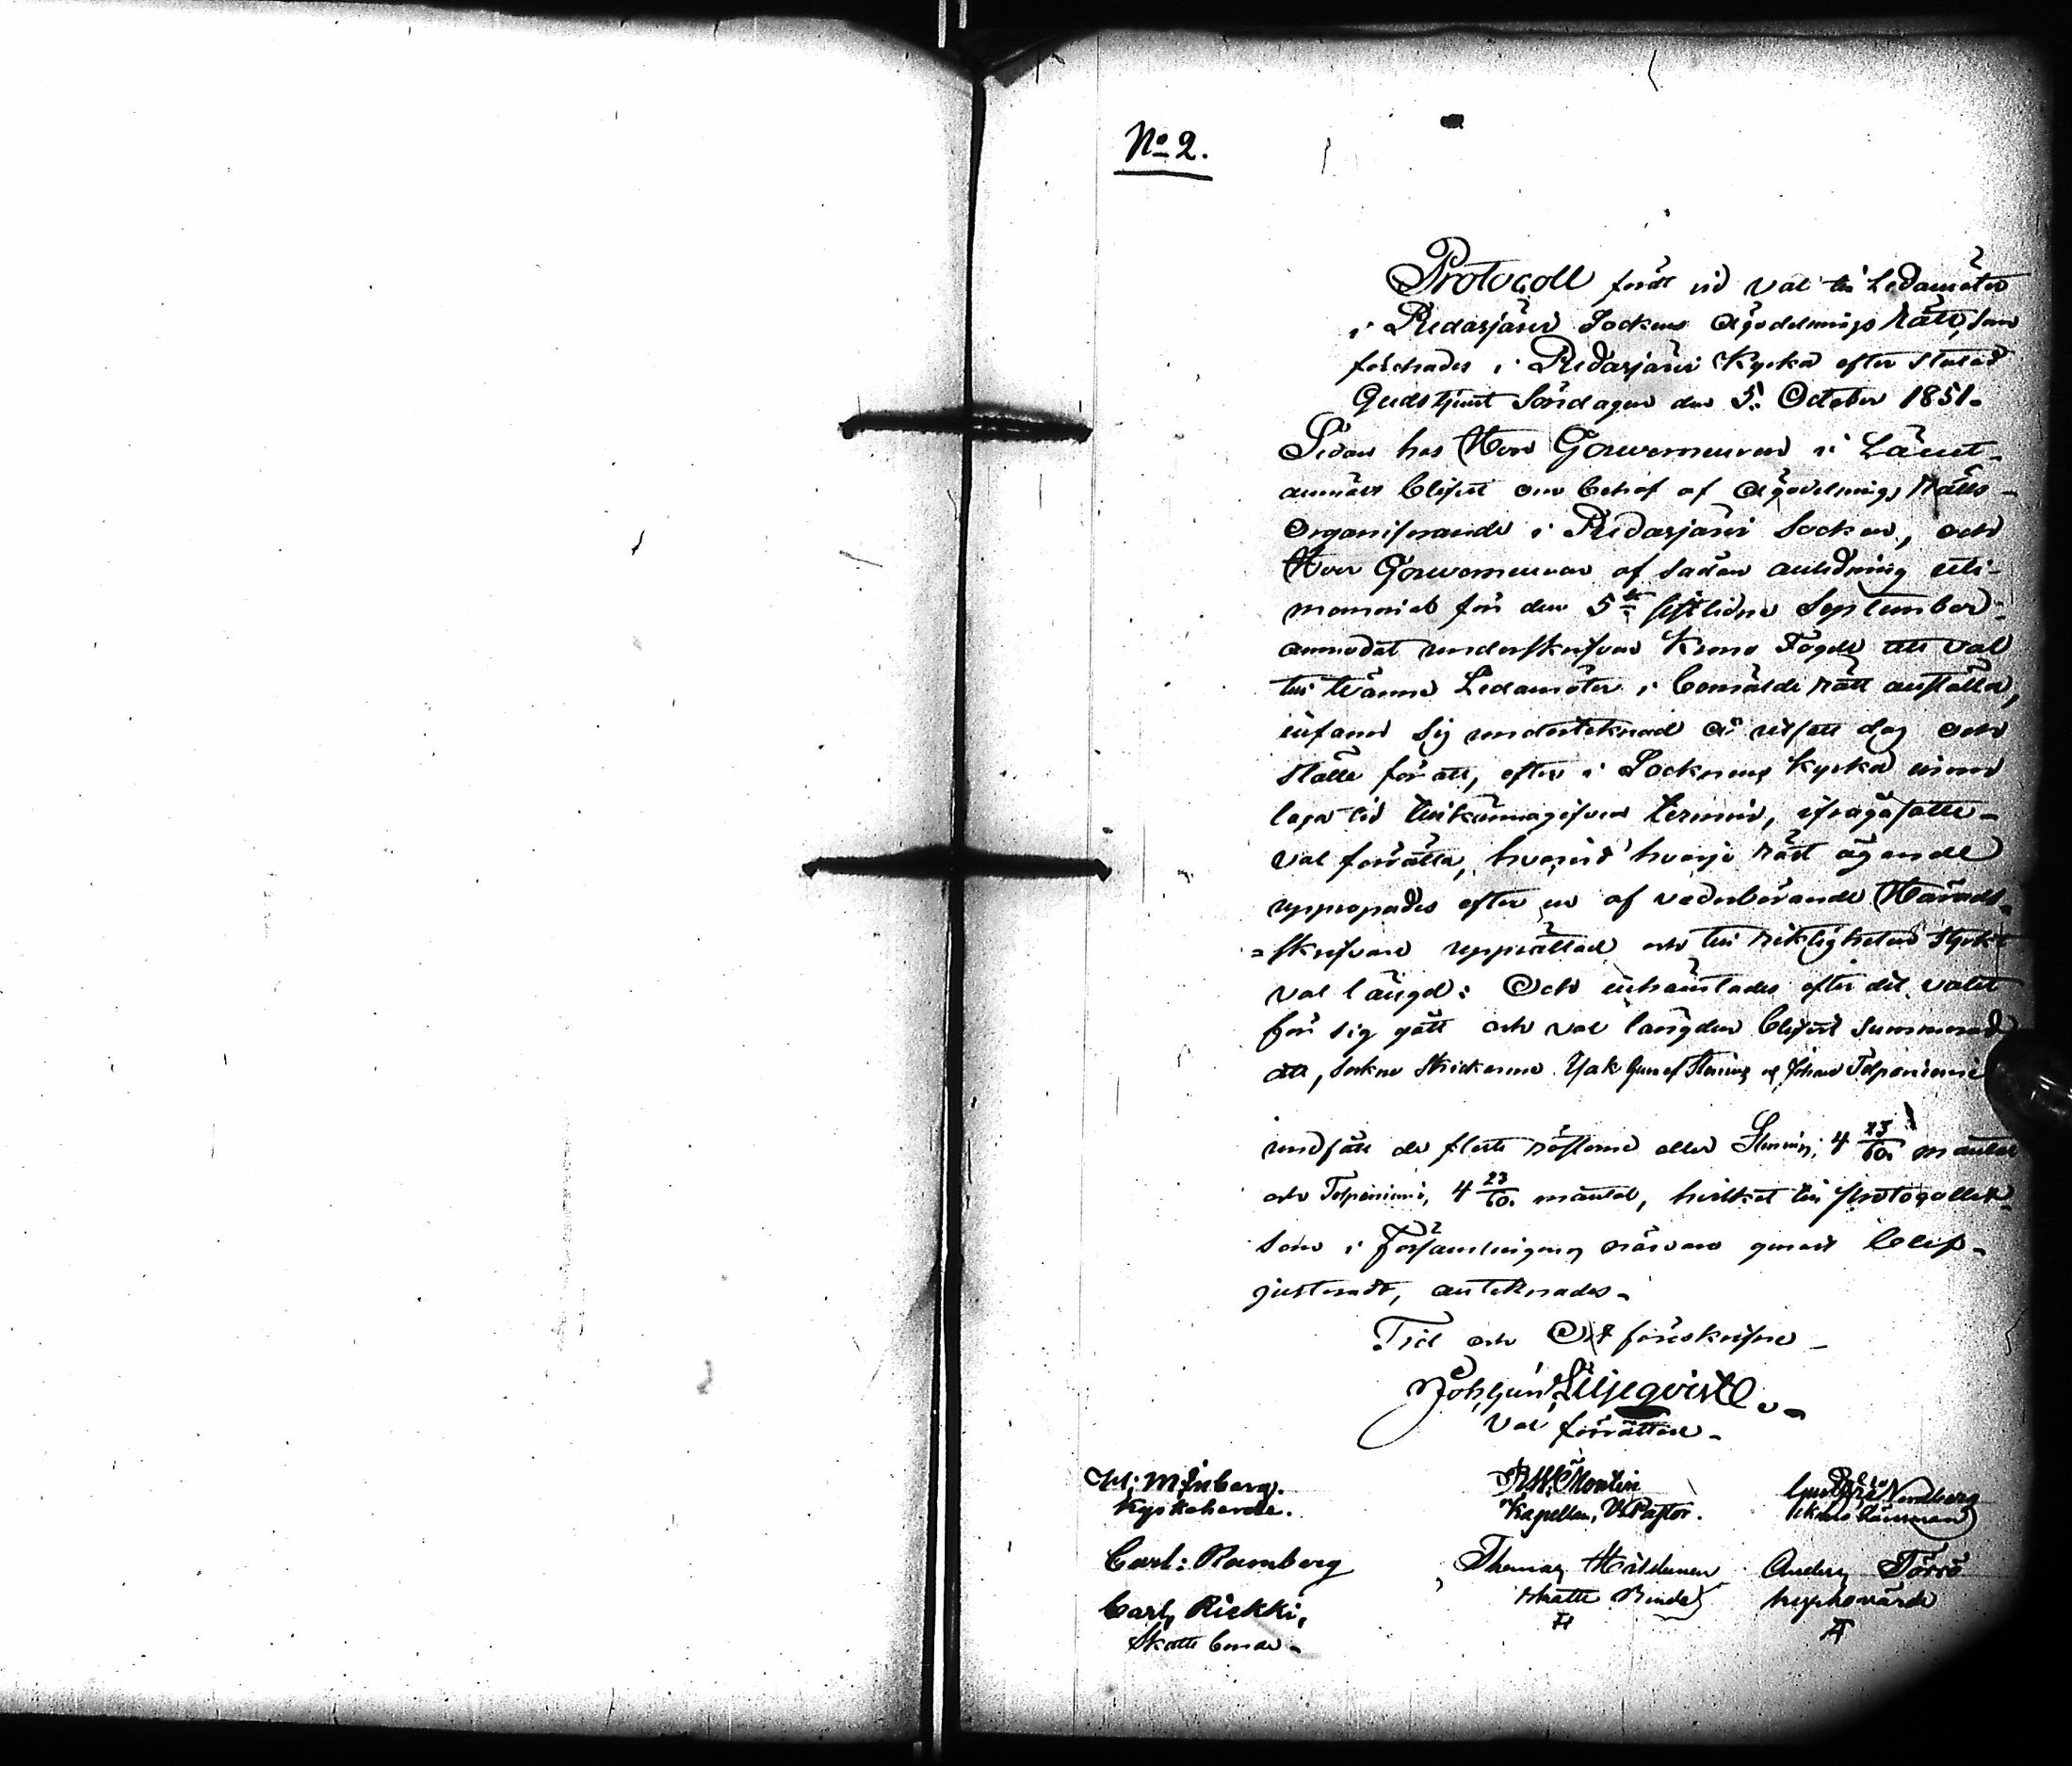 No 2.
Protocoll fördt vid val till Ledamöter
i Pidasjärvi Sockens Ägodelnings Rätt, som
förehades i Pidasjärvi Kyrka efter slutad
Gudstjenst Söndagen den 5. October 1851.
Sedan hos Herr Gouverneuren i Länet
anmäldt blifvit om behof af Ägodelnings Rätts
organiserande i Pidasjärvi Socken, och
Herr Gouverneuren af sådan anledning uti
memorial för den 5te sistlidne September
anmodat underskrifven Krono Fogde att val
till tvänne Ledamöter i bemälde rätt anställa,
infann sig undertecknad å utsatt dag och
ställe för att, efter i Socknens Kyrka inom
laga tid tillkännagifven termin, ifrågasatte
val förrätta, hvarvid hvarje röst ägande
uppropades efter en af vederbörande Härads-
=skrifvare upprättad och till riktigheten styrkt
val längd: Och inhämtades efter det valet
för sig gått och val längden blifvit summerad
att, Socknе Skräddarne Isak Gustaf Stening och Johan Tolpaniemi
undfått de fleste rösterne eller Stening 4 23/60 mantal
och Tolpaniemi, 4 23/60 mantal, hvilket till protogollet
som i Församlingens närvaro genast blef
justeradt, antecknades.
Tid och Ort föreskrifne
Joh: Liljeqvist
Val förrättare
M: Enberg.
Kyrkoherde.
Montin
Kapellan, V. Pastor.
Nordberg
Länsman
Carl: Ramberg
Thomas Hildunen
Anders Törrö
Skatte Bonde
kyrkovärd
Carl Riekki,
Skatte bonde